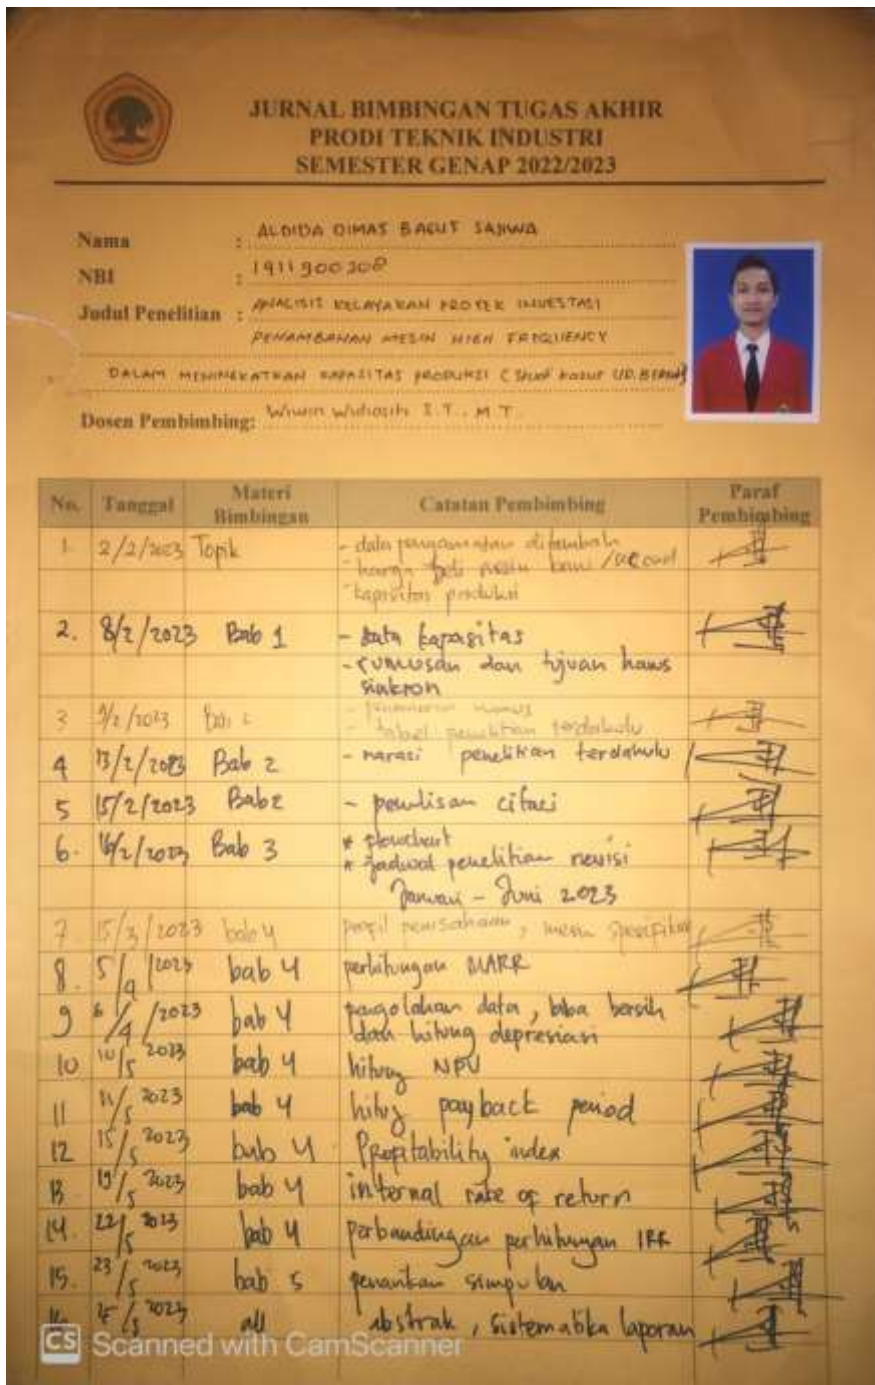 JURNAL BIMBINGAN TUGAS AKHIR
PRODI TEKNIK INDUSTRI
SEMESTER GENAP 2022/2023
Nama : ALDIDA DIMAS BAGUS SAJIWA
NBI : 1911900308
Judul Penelitian : ANALISIS KELAYAKAN PROYEK INVESTASI
PENAMBAHAN MESIN HIGH FREQUENCY
DALAM MENINGKATKAN KAPASITAS PRODUKSI (Studi Kasus UD.
Dosen Pembimbing: Wiwin Widiasih S.T., M.T.
No. Tanggal Materi Bimbingan Catatan Pembimbing Paraf Pembimbing
1. 2/2/2023 Topik - data pengamatan ditambah
- harga beli mesin baru /second
- kapasitas produksi
2. 8/2/2023 Bab 1 - data kapasitas
- rumusan dan tujuan harus
sinkron
3 9/2/2023 Bab 2
- tabel penelitian terdahulu
4 13/2/2023 Bab 2 - narasi penelitian terdahulu
5 15/2/2023 Bab 2 - penulisan citasi
6. 16/2/2023 Bab 3 * flowchart
* jadwal penelitian revisi
Januari - Juni 2023
7. 15/3/2023 bab 4 profil perusahaan, mesin spesifikasi
8. 5/4/2023 bab 4 perhitungan MARR
9 6/4/2023 bab 4 pengolahan data, laba bersih
dan hitung depresiasi
10 10/5 2023 bab 4 hitung NPV
11 11/5 2023 bab 4 hitug payback period
12 15/5 2023 bab 4 Profitability index
13 19/5 2023 bab 4 internal rate of return
14. 22/5 2023 bab 4 perbandingan perhitungan IRR
15. 23/5 2023 bab 5 penarikan simpulan
2023 all abstrak, sistematika laporan
CS Scanned with CamScanner